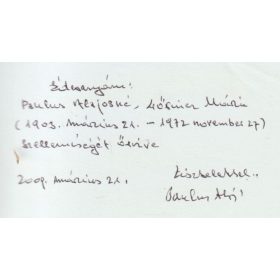 Édesanyám:
Paulus Alajosné, Lősinez Mária
(1903. március 21. – 1972 november 27)
Szellemiségét őrizve
2009. március 21.
tisztelettel.
Paulus Alajos